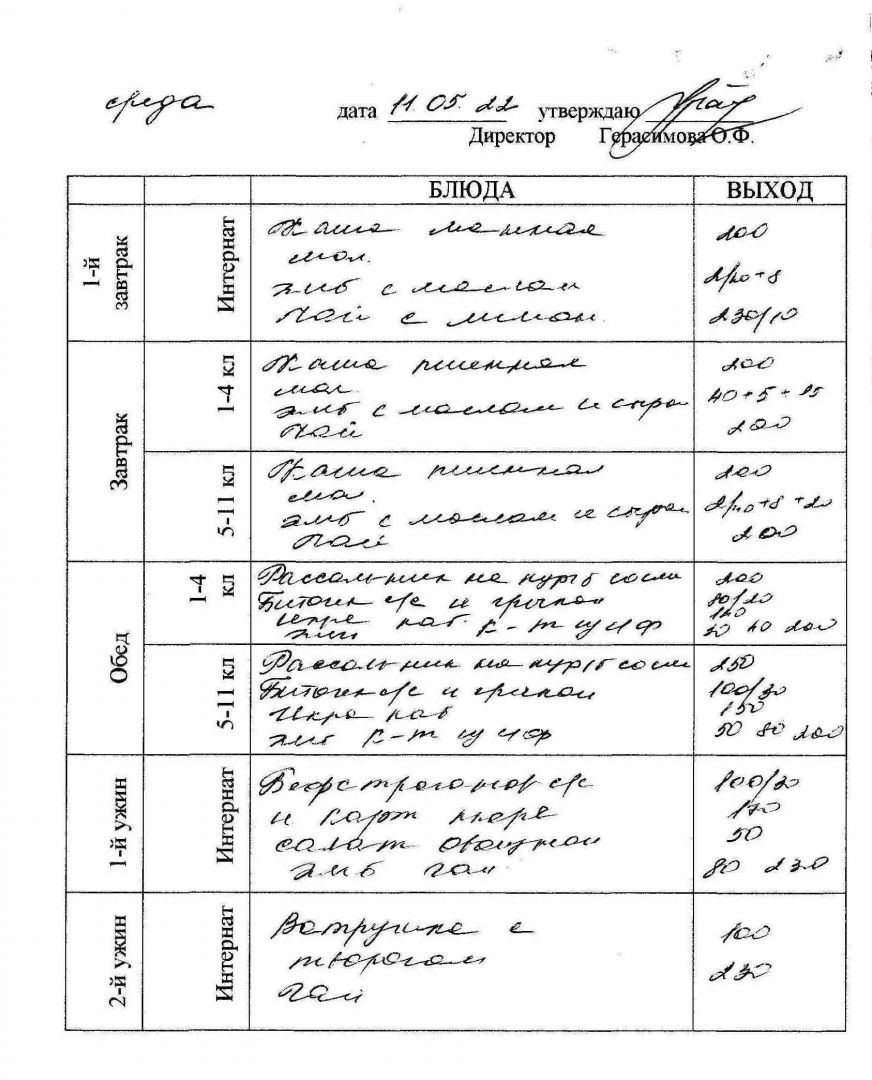 среда дата 11.05.22 утверждаю
Директор Герасимова О.Ф.
БЛЮДА ВЫХОД
1-й завтрак Интернат
Каша манная 200
мол.
хлеб с маслом 2/40+8
Чай с лимон. 230/10
Завтрак 1-4 кл
Каша пшенная 200
мол
хлеб с маслом и сыром 40+5+15
Чай 200
5-11 кл
Каша пшенная 200
мол.
хлеб с маслом и сыром 2/40+8+20
Чай 200
Обед 1-4 кл
Рассольник на кур/б сосл 200
Биточки с/с и гречкой 80/20
Икра каб.
хлеб к-т
200
5-11 кл
Рассольник на кур/б сосл 250
Биточки с/с и гречкой 100/30
Икра каб 150
хлеб к-т 50 80 200
1-й ужин Интернат
Бефстроганов с/с 100/30
и карт пюре 170
салат овощной 50
хлеб чай 80 230
2-й ужин Интернат
Ватрушка с 100
творогом 230
Чай